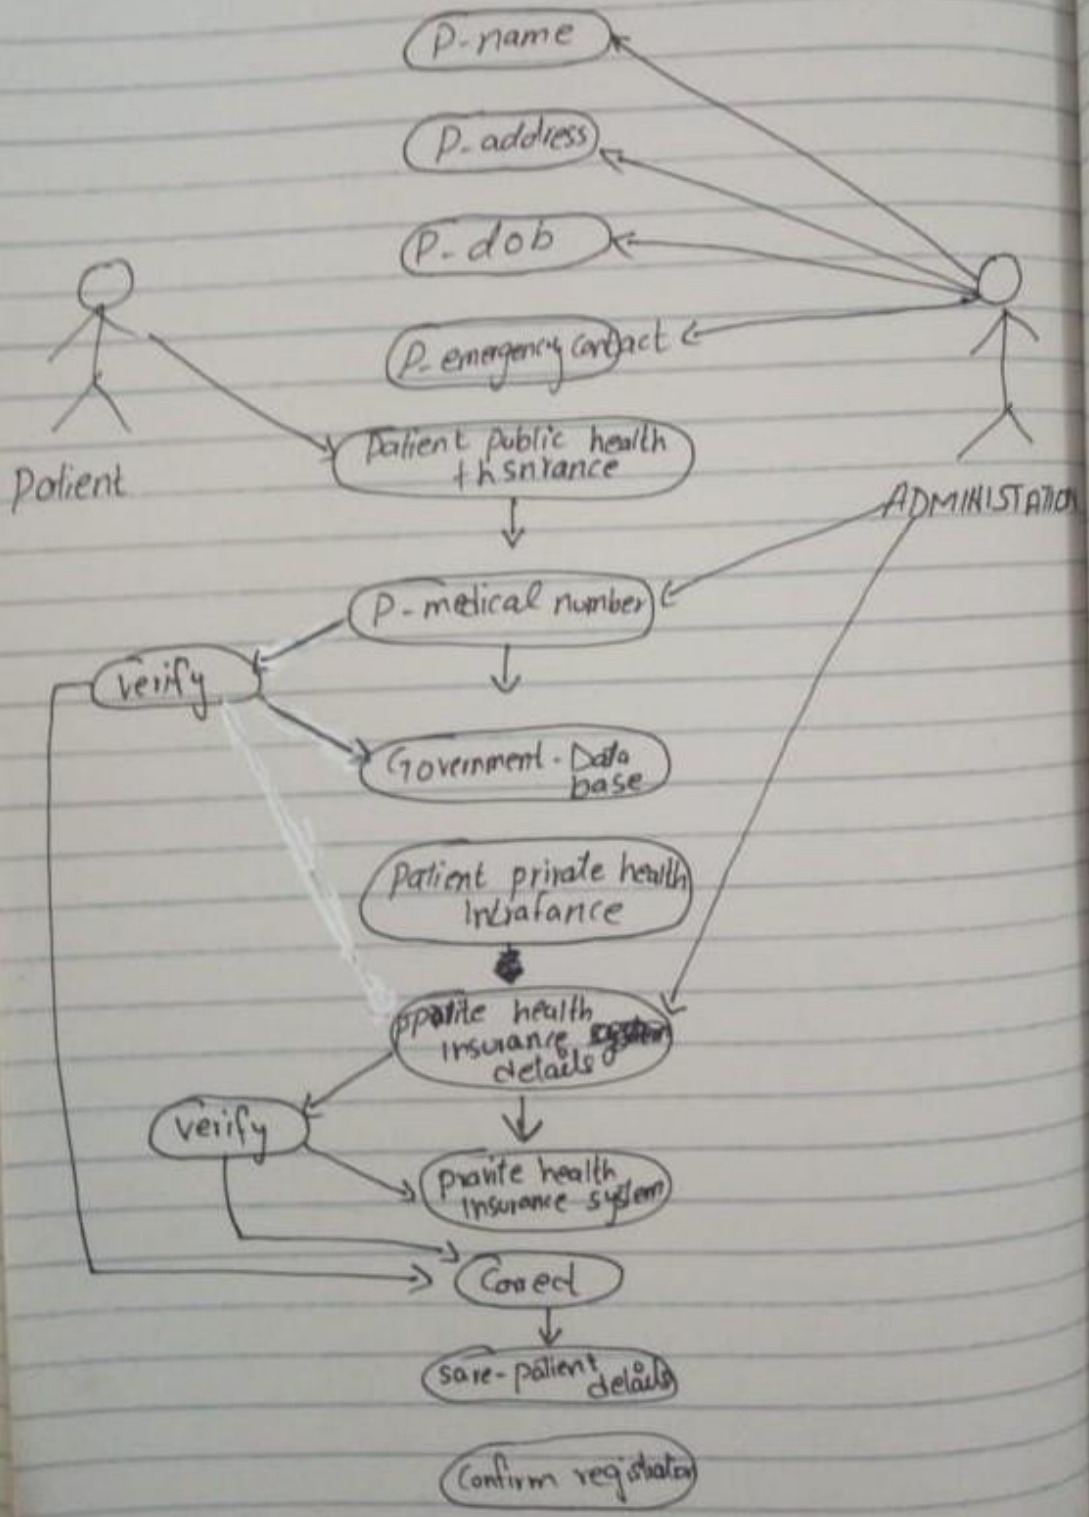 P-name
P-address
P-dob
P-emergency contact
Patient public health
Patient
ADMINISTATION
P-medical number
Verify
Government-Data
base
Patient private health
health
insurance
details
Verify
pravite health
insurance system
Correct
save-patient
details
Confirm registration